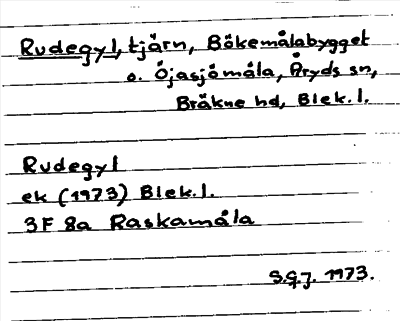 Rudegyl, tjärn, Bökemålabygget
o. Öjasjömåla, Åryds sn,
Bräkne hd, Blek.l.
Rudegyl
ek (1973) Blek.l.
3F 8a Raskamåla
S.G.J. 1973.